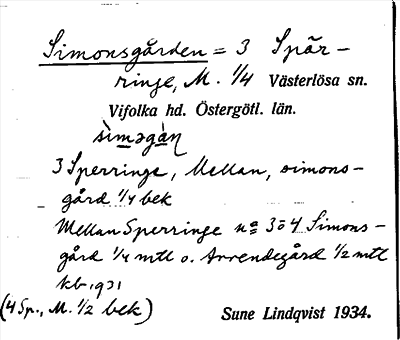 Simonsgården = 3 Spär-
ringe, M. 1/4 Västerlösa sn.
Vifolka hd. Östergötl. län.
sìməgàɳ
3 Sperringe, Mellan, simons-
gård 1/4 bek
Mellan Sperringe nº 3 o 4 Simons-
gård 1/4 mtl o. Arrendegård 1/2 mtl
kb 1931
(4 Sp., M. 1/2 bek)
Sune Lindqvist 1934.